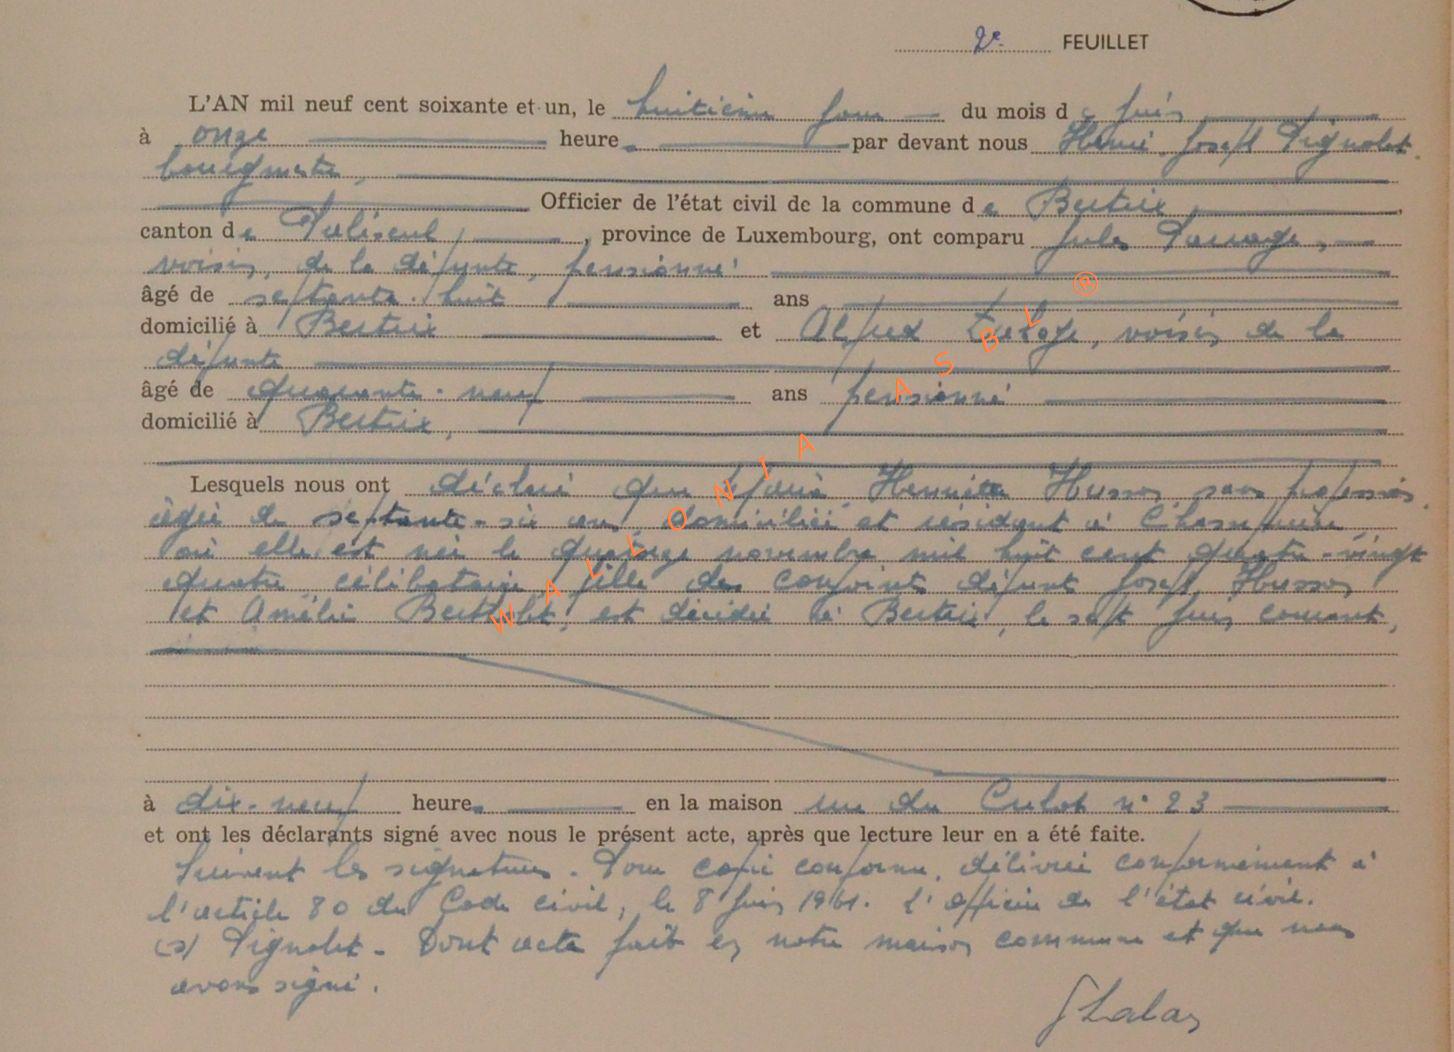 2e FEUILLET
L'AN mil neuf cent soixante et un, le huitième jour du mois de juin
à onze heures par devant nous Henri Joseph Pignolet
bourgmestre,
Officier de l'état civil de la commune de Bertrix,
canton de Paliseul, province de Luxembourg, ont comparu Jules
voisin de la défunte, pensionné
âgé de septante-huit ans
domicilié à Bertrix et Alfred voisin de la
défunte
âgé de quarante-neuf ans pensionné
domicilié à Bertrix,
Lesquels nous ont déclaré que Maria Henriette Husson sans profession
âgée de septante-six ans, domiciliée et résidant à
où elle est née le quatorze novembre mil huit cent quatre-vingt
quatre célibataire, fille des conjoint défunt Joseph Husson
et Amélie Bertholet, est décédée à Bertrix, le sept juin courant,
à dix-neuf heures en la maison rue du Culot n° 23
et ont les déclarants signé avec nous le présent acte, après que lecture leur en a été faite.
Suivent les signatures. Pour copie conforme, délivrée conformément à
l'article 80 du Code civil, le 8 juin 1961. L'officier de l'état civil.
(s) Pignolet - Dont acte fait en notre maison communale et que nous
avons signé.
WALLONIA ASBL ®